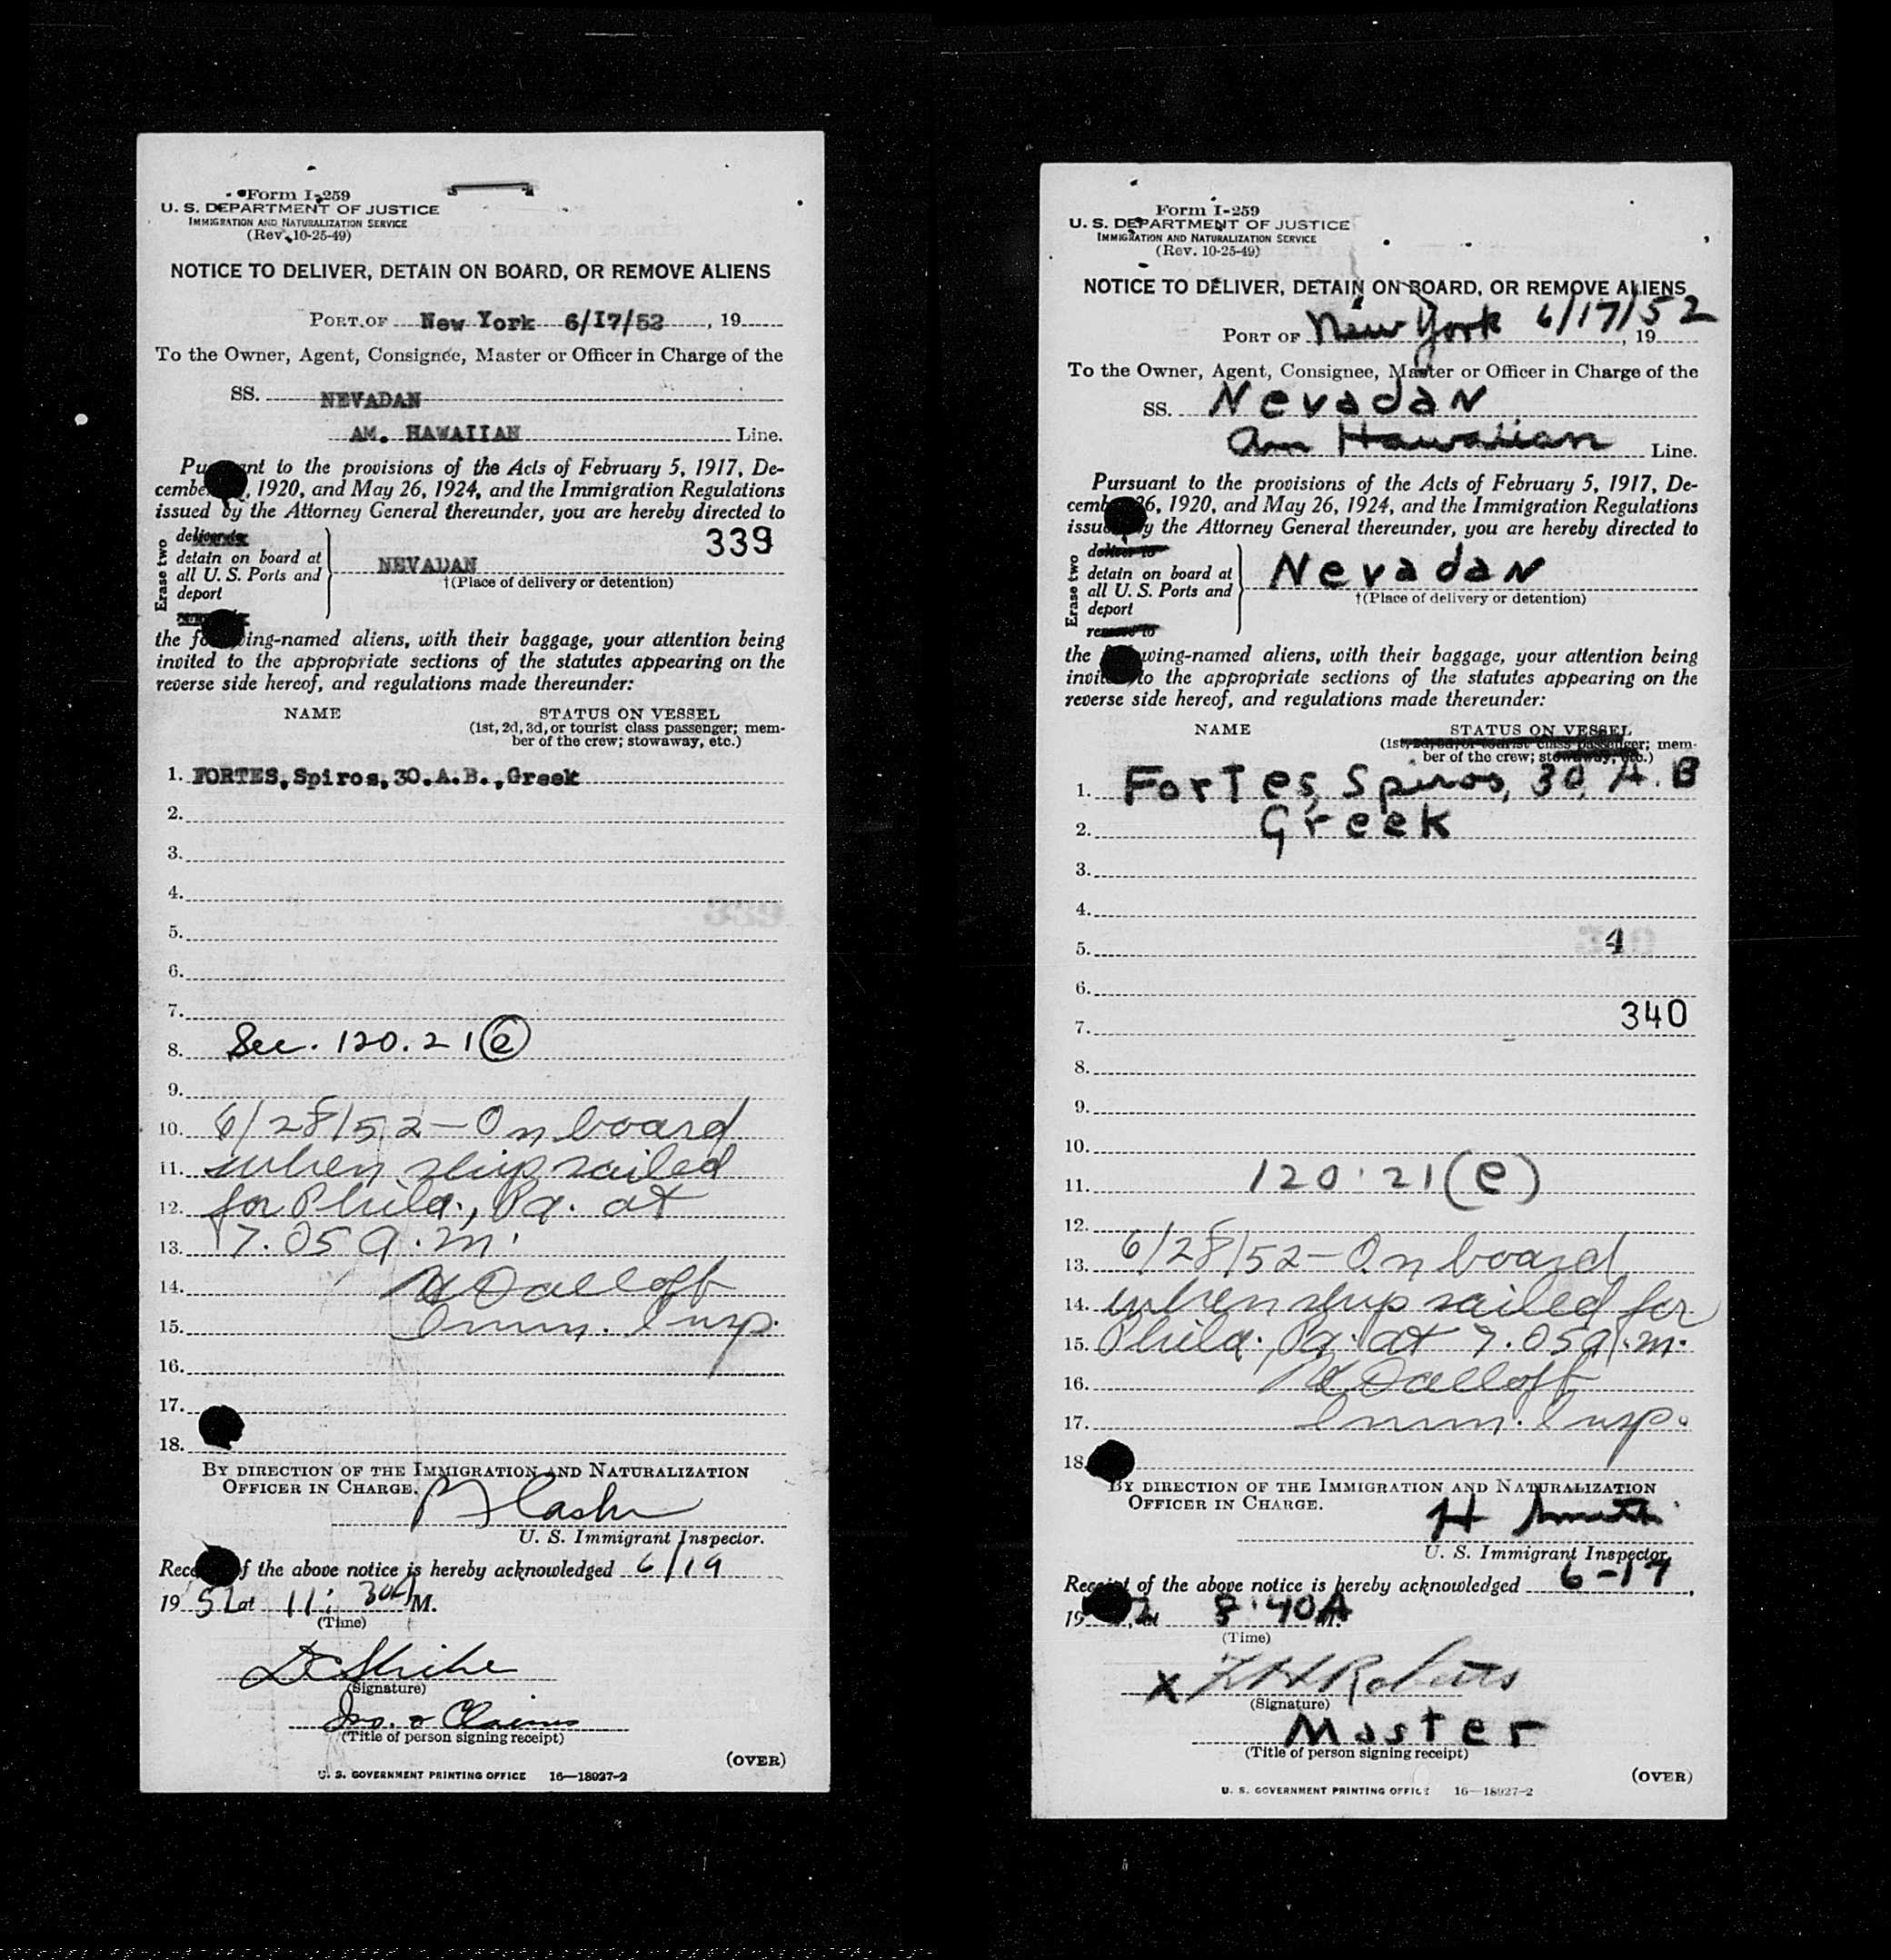 Form I-259
U. S. DEPARTMENT OF JUSTICE
IMMIGRATION AND NATURALIZATION SERVICE
(Rev. 10-25-49)
NOTICE TO DELIVER, DETAIN ON BOARD, OR REMOVE ALIENS
PORT OF New York 6/17/52, 19
To the Owner, Agent, Consignee, Master or Officer in Charge of the
SS. NEVADAN
AM. HAWAIIAN Line.
Pu nt to the provisions of the Acts of February 5, 1917, De-
cembe , 1920, and May 26, 1924, and the Immigration Regulations
issued by the Attorney General thereunder, you are hereby directed to
339
Erase two
detain on board at
all U. S. Ports and
deport
NEVADAN
†(Place of delivery or detention)
the fo ing-named aliens, with their baggage, your attention being
invited to the appropriate sections of the statutes appearing on the
reverse side hereof, and regulations made thereunder:
NAME STATUS ON VESSEL
(1st, 2d, 3d, or tourist class passenger; mem-
ber of the crew; stowaway, etc.)
1. FORTES, Spiros, 30. A.B., Greek
2.
3.
4.
5.
6.
7.
8. Sec. 120.21(e)
9.
10. 6/28/52 - On board
11. when ship sailed
12. for Phila., Pa. at
13. 7.05 a.m.
14.
15. Imm. Insp.
16.
17.
18.
BY DIRECTION OF THE IMMIGRATION AND NATURALIZATION
OFFICER IN CHARGE.
U. S. Immigrant Inspector.
Rece f the above notice is hereby acknowledged 6/19
19 52 at 11:30 A M.
(Time)
(Signature)
Ins. & Claims
(Title of person signing receipt)
(OVER)
U. S. GOVERNMENT PRINTING OFFICE 16—18927-2
Form I-259
U. S. DEPARTMENT OF JUSTICE
IMMIGRATION AND NATURALIZATION SERVICE
(Rev. 10-25-49)
NOTICE TO DELIVER, DETAIN ON BOARD, OR REMOVE ALIENS
PORT OF New York 6/17/52, 19
To the Owner, Agent, Consignee, Master or Officer in Charge of the
SS. Nevadan
Am Hawaiian Line.
Pursuant to the provisions of the Acts of February 5, 1917, De-
cemb 26, 1920, and May 26, 1924, and the Immigration Regulations
issu y the Attorney General thereunder, you are hereby directed to
Erase two
deliver to
detain on board at
all U. S. Ports and
deport
remove to
Nevadan
†(Place of delivery or detention)
the wing-named aliens, with their baggage, your attention being
invi to the appropriate sections of the statutes appearing on the
reverse side hereof, and regulations made thereunder:
NAME STATUS ON VESSEL
(1st, 2d, 3d, or tourist class passenger; mem-
ber of the crew; stowaway, etc.)
1. Fortes, Spiros, 30, A.B
2. Greek
3.
4.
5. 4
6.
340
7.
8.
9.
10.
11. 120.21(e)
12.
13. 6/28/52 - On board
14. when ship sailed for
15. Phila., Pa. at 7.05 a.m.
16.
17. Imm. Insp.
18.
BY DIRECTION OF THE IMMIGRATION AND NATURALIZATION
OFFICER IN CHARGE.
H Smith
U. S. Immigrant Inspector.
Receipt of the above notice is hereby acknowledged 6-17,
19 2, at 8:40 A M.
(Time)
X F H Roberts
(Signature)
Master
(Title of person signing receipt)
(OVER)
U. S. GOVERNMENT PRINTING OFFICE 16—18927-2